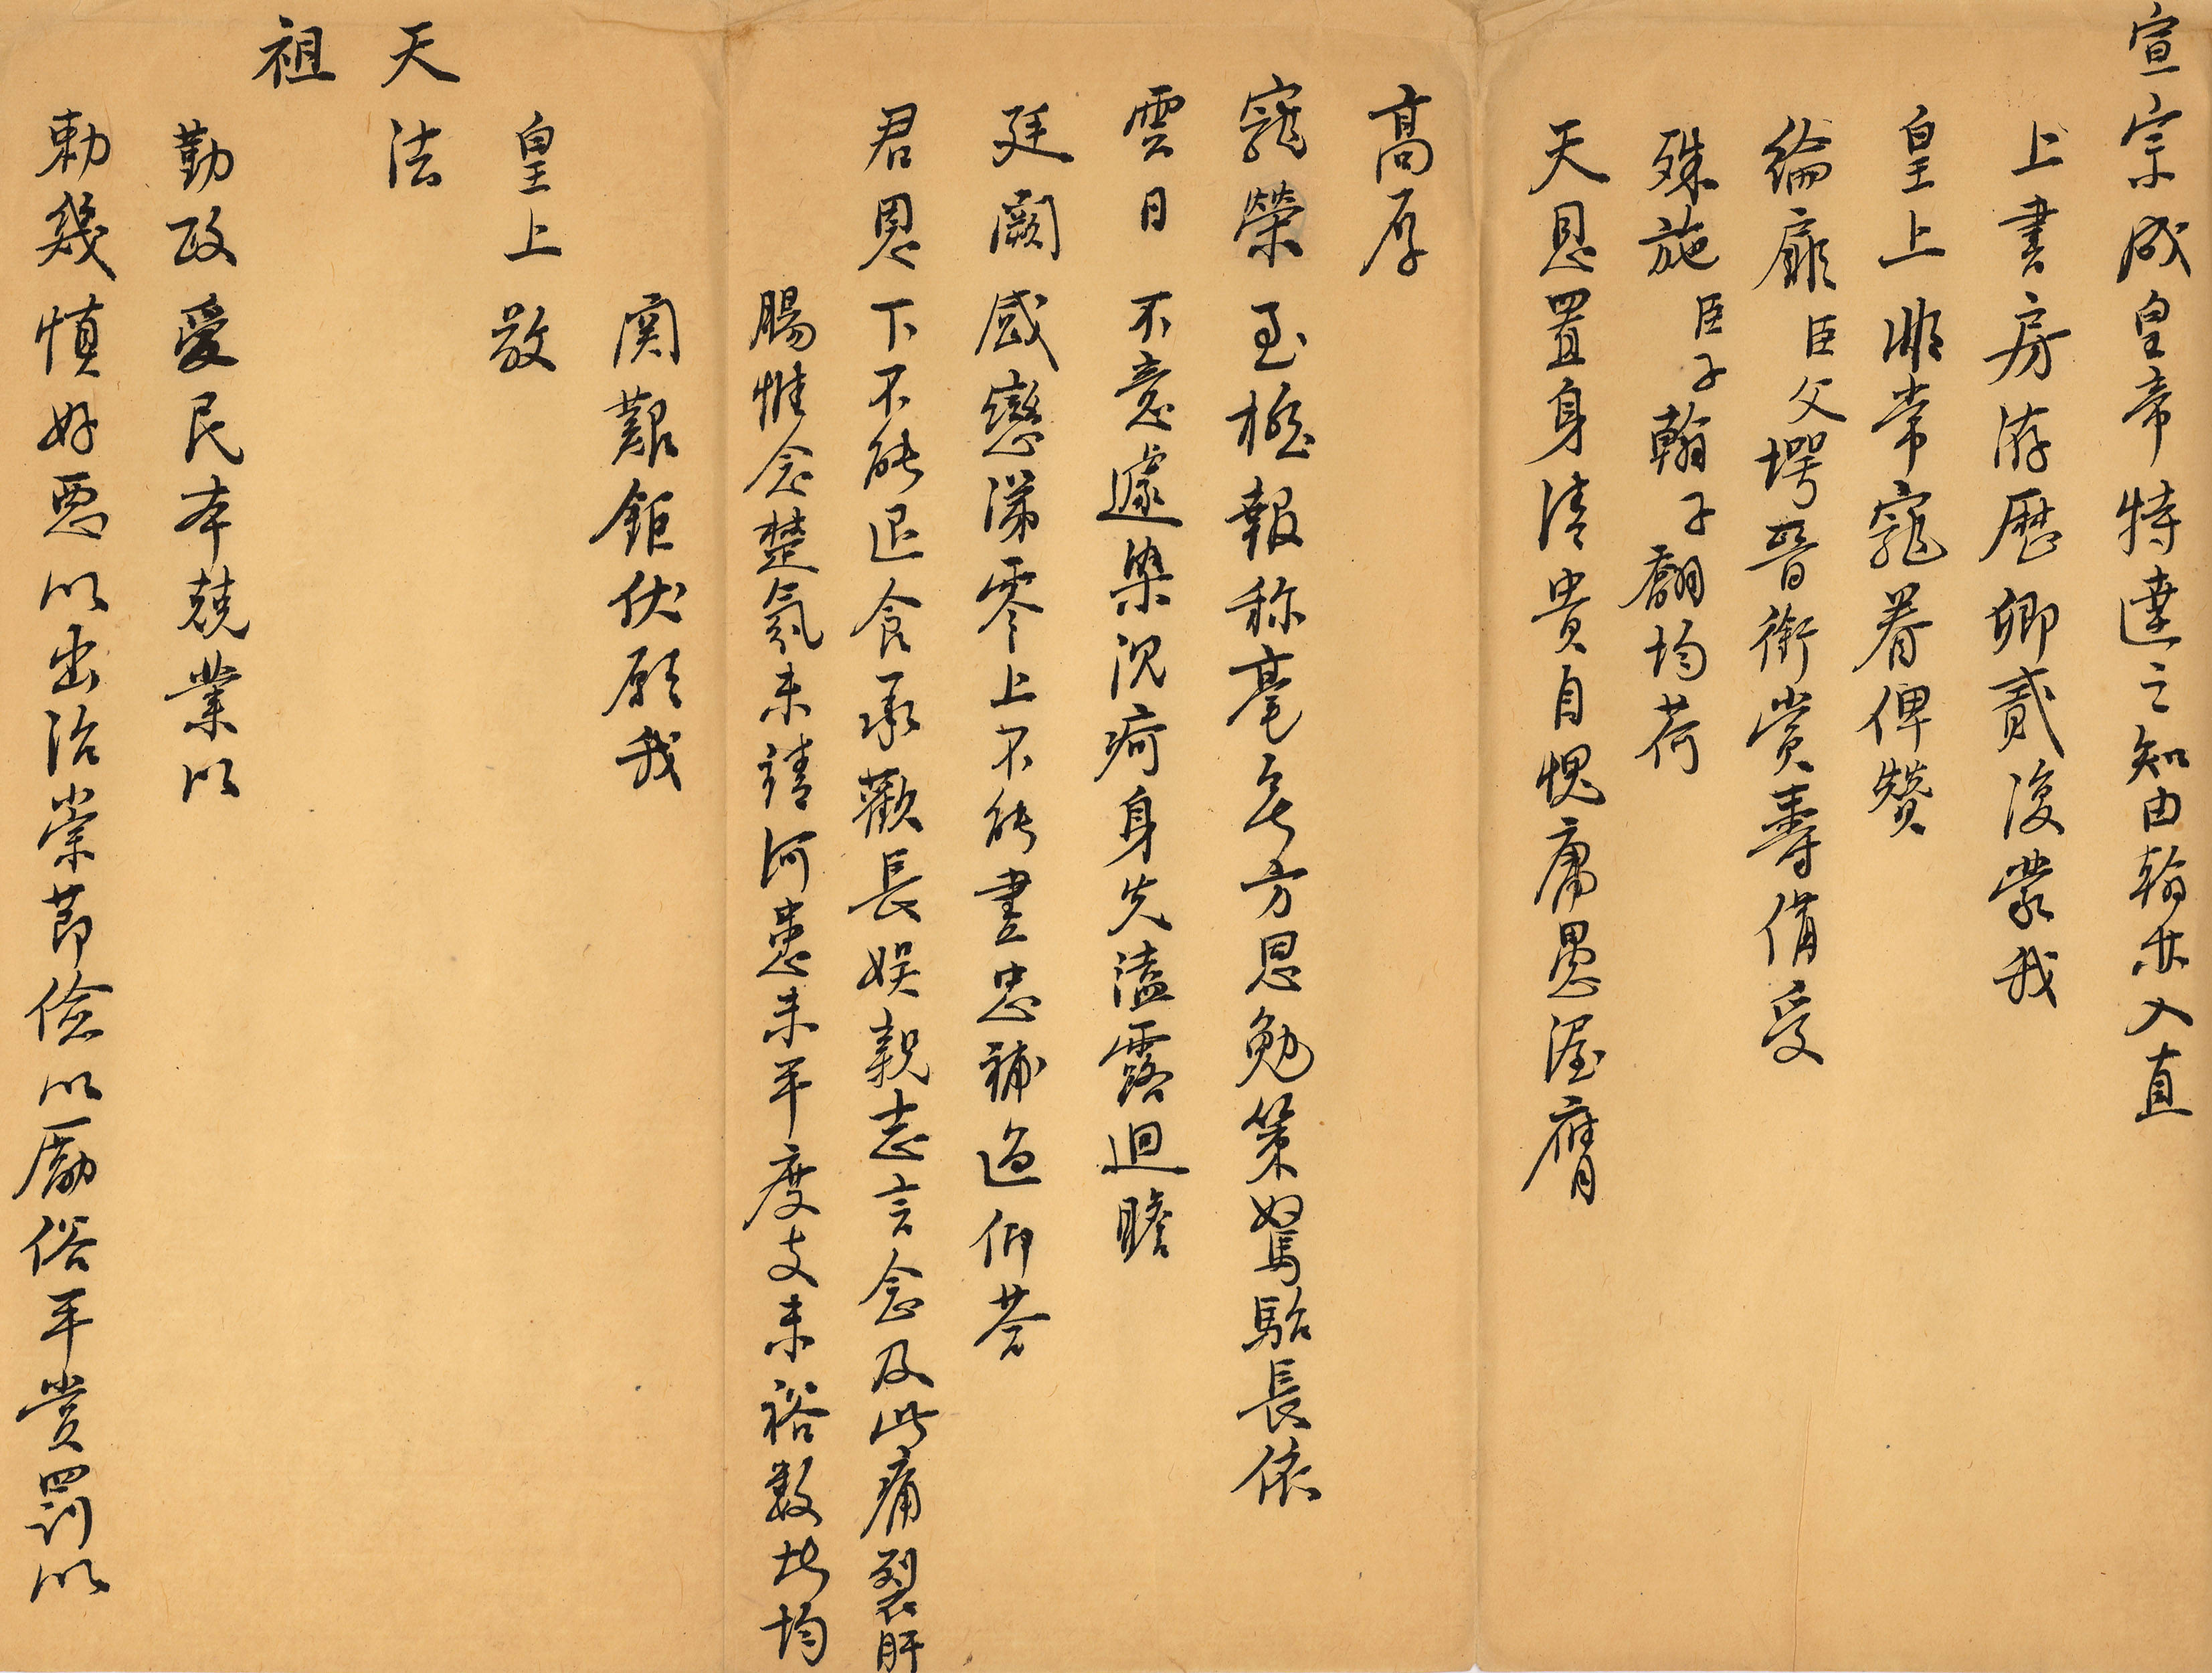 宣宗成皇帝特達之知由翰林入直
上書房游歷卿貳復蒙我
皇上非常寵眷俾贊
綸扉臣父堮晉銜賞壽備受
殊施臣子翰子翻均荷
天恩置身清貴自愧庸愚渥膺
高厚
寵榮至極報称毫無方思勉策駑駘長依
雲日不意遽染沉疴身先溘露迴瞻
廷闕感戀涕零上不能盡忠補過仰荅
君恩下不能退食承歡長娱親志言念及此痛裂肝
腸惟念楚氛未靖河患未平度支未裕数端均
関艱鉅伏願我
皇上敬
天法
祖
勤政愛民本兢業以
勅幾慎好惡以出治崇節儉以勵俗平賞罰以